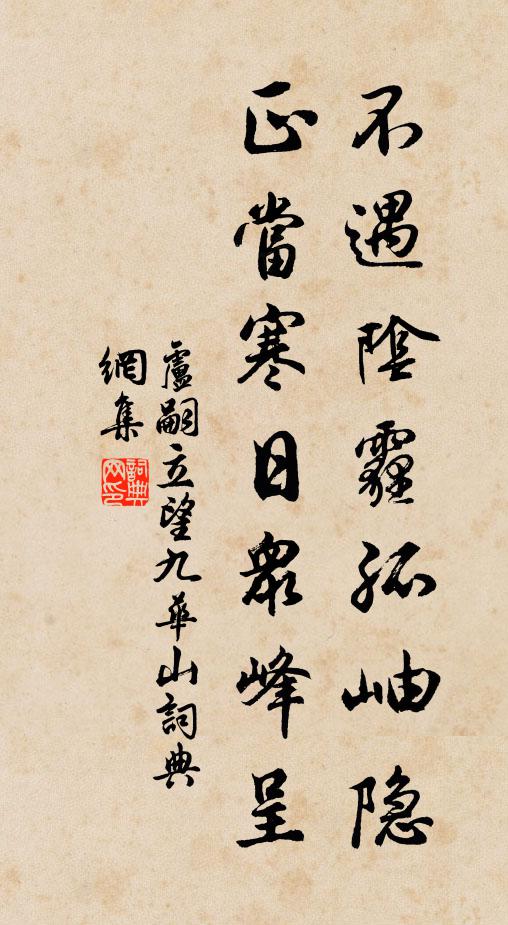 不遇陰霾孤岫隐
正當寒日衆峰呈
盧嗣立望九華山詞典
網集
詞典
网印